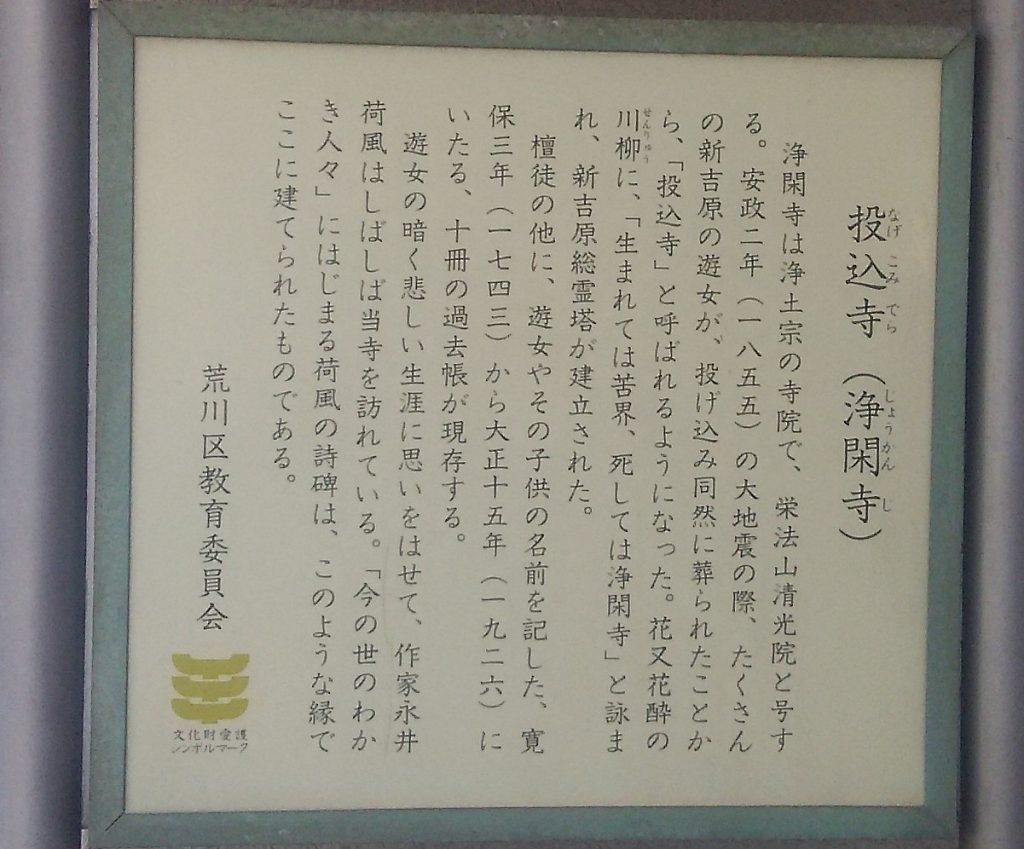 投込寺（浄閑寺）
なげこみでら
しょうかんじ
浄閑寺は浄土宗の寺院で、栄法山清光院と号す
る。安政二年（一八五五）の大地震の際、たくさん
の新吉原の遊女が、投げ込み同然に葬られたことか
ら、「投込寺」と呼ばれるようになった。花又花酔の
川柳に、「生まれては苦界、死しては浄閑寺」と詠ま
せんりゅう
れ、新吉原総霊塔が建立された。
檀徒の他に、遊女やその子供の名前を記した、寛
保三年（一七四三）から大正十五年（一九二六）に
いたる、十冊の過去帳が現存する。
遊女の暗く悲しい生涯に思いをはせて、作家永井
荷風はしばしば当寺を訪れている。「今の世のわか
き人々」にはじまる荷風の詩碑は、このような縁で
ここに建てられたものである。
荒川区教育委員会
文化財愛護
シンボルマーク